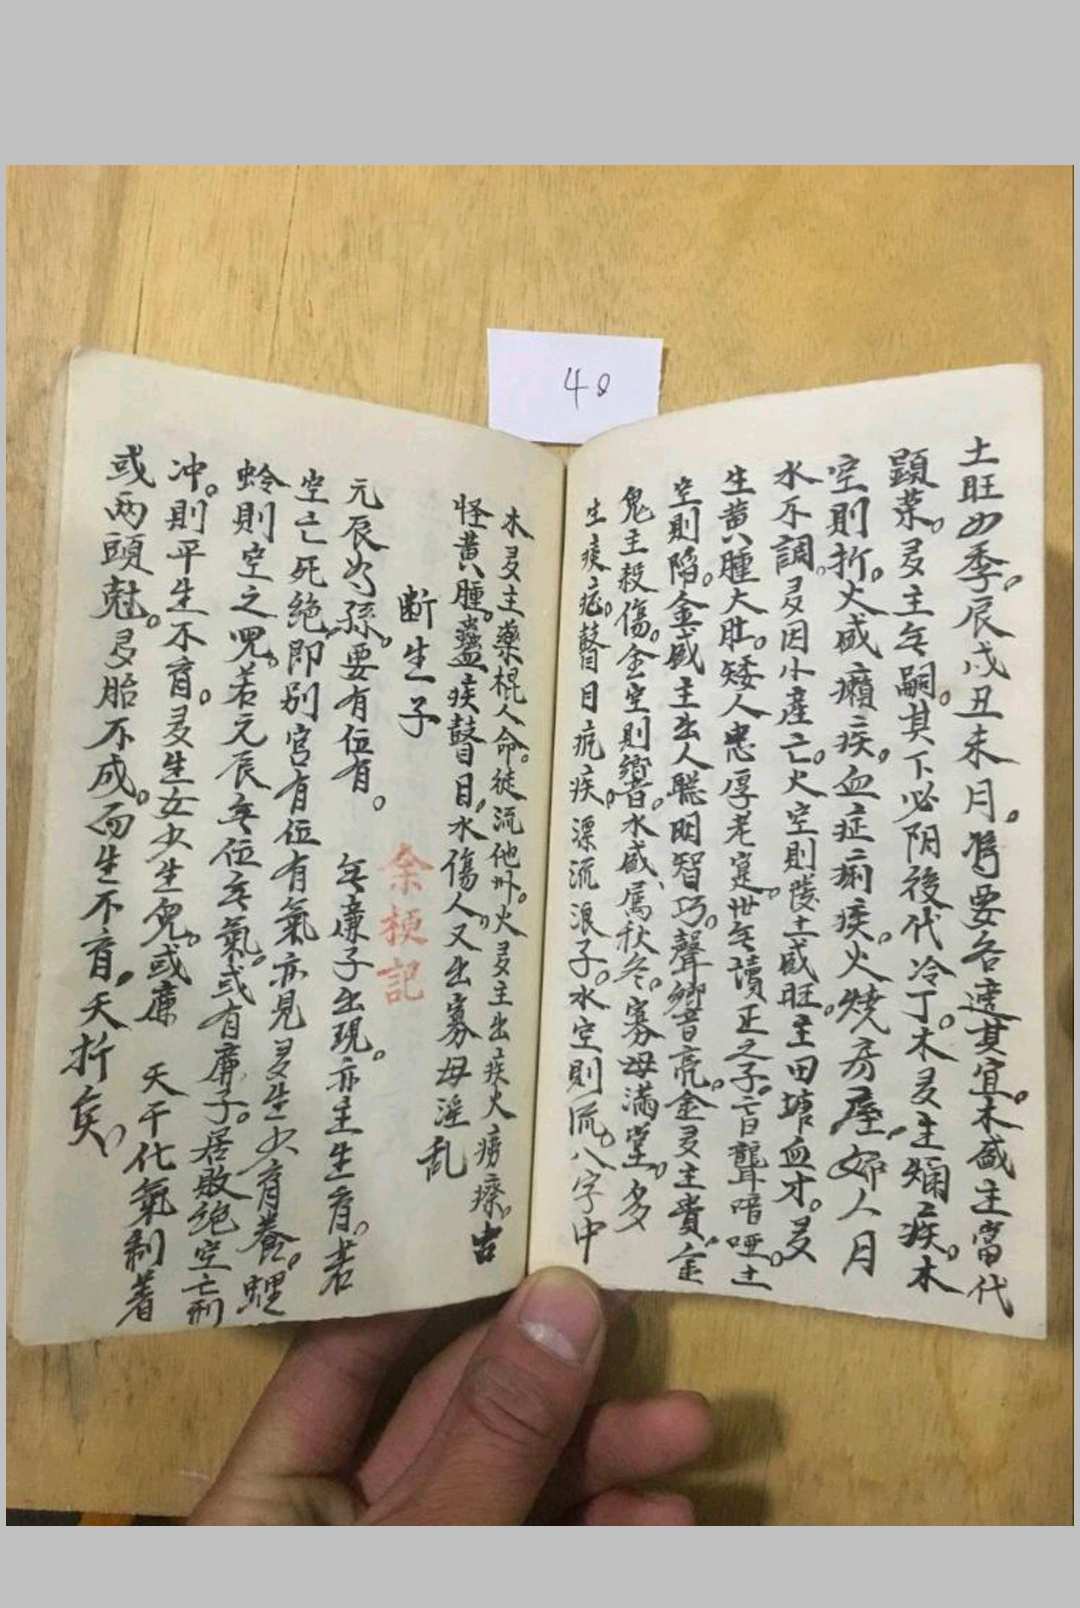 40
土旺四季。辰戌丑未月。務要各遂其宜。木盛主當代
顕荣。多主無嗣。其下必阴後代冷丁。木多生㿋疾。木
空則折。火盛癩疾。血症痢疾。火燒房屋。婦人月
水不調。多因小產亡。火空則發土盛旺。主田塘血才。多
生黄腫大肚。矮人忠厚老寔。世無讀正之子。盲聾喑哑。土
空則陷。金盛主出人聪明智巧。聲響音亮。金多主貴。金
鬼主殺傷。金空則響。水盛属秋冬。寡母滿堂。多
生痰症。瞽目疯疾。漂流浪子。水空則流。八字中
木多主藥棍人命。徒流他州。火多主出疾火癆瘵。古
怪黄腫。蠱疾瞽目。水傷人。又出寡母滛乱
断生子
余梗記
元辰为孫。要有位有。無廉子出現。亦主生育。若
空亡死絶。即别宫有位有氣亦見多生少育養。螟
蛉則空之児。若元辰無位無氣。或有廉子。居敗绝空亡刑
冲。則平生不育。多生女少生児。或廉天干化氣制着
或兩頭尅。多胎不成。而生不育。夭折矣。